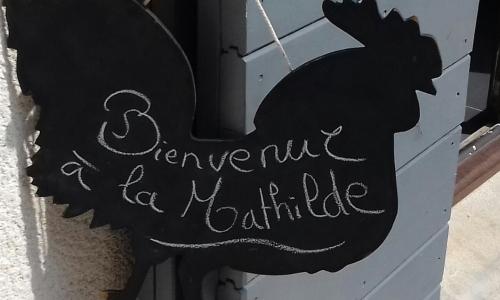 Bienvenue
à la Mathilde